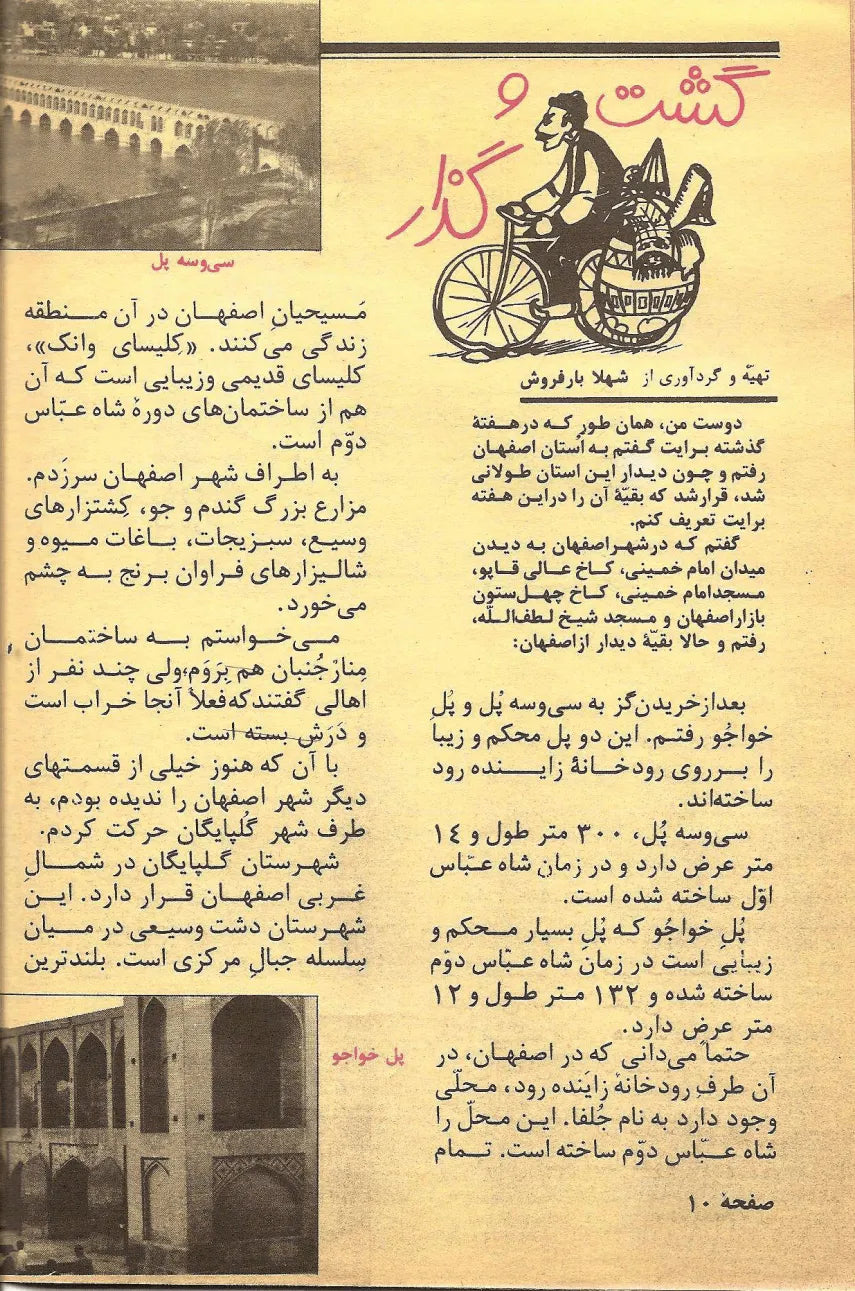 گشت و گذار
تهیّه و گردآوری از شهلا بارفروش
دوست من، همان طور که در هفتهٔ
گذشته برایت گفتم به اُستان اصفهان
رفتم و چون دیدار این استان طولانی
شد، قرارشد که بقیّهٔ آن را دراین هفته
برایت تعریف کنم.
گفتم که درشهراصفهان به دیدن
میدان امام خمینی، کاخ عالی قاپو،
مسجدامام خمینی، کاخ چهل‌ستون
بازاراصفهان و مسجد شیخ لطف‌اللّه،
رفتم و حالا بقیّهٔ دیدار ازاصفهان:
بعدازخریدن‌گز به سی‌وسه پُل و پُل
خواجُو رفتـم. این دو پل محکم و زیبا
را بـرروی رودخـانهٔ زاینده رود
ساخته‌اند.
سی‌وسه پُل، ۳۰۰ متر طول و ۱۴
متر عرض دارد و در زمان شاه عبّاس
اوّل ساخته شده است.
پُلِ خواجُو کـه پُلِ بسیار محکم و
زیبایی است در زمان شاه عبّاس دوّم
ساخته شده و ۱۳۲ متر طول و ۱۲
متر عرض دارد.
حتماً می‌دانی که در اصفهان، در
آن طرفِ رودخانهٔ زاینده رود، محلّی
وجود دارد به نام جُلفا. این محلّ را
شاه عبّاس دوّم ساخته است. تمام
صفحهٔ ۱۰
سی‌وسه پل
مَسیحیانِ اصفهان در آن منطقه
زندگی می‌کنند. «کِلیسای وانک»،
کلیسای قدیمی وزیبایی است که آن
هم از ساختمان‌های دورهٔ شاه عبّاس
دوّم است.
به اطراف شهر اصفهان سرزَدم.
مزارع بزرگ گندم و جو، کِشتزارهای
وسیع، سبزیجات، باغات میوه و
شالیزارهای فراوان برنج به چشم
می‌خورد.
می‌خواستم به ساختمان
مِنارْجُنبان هم بِرَوَم،ولی چند نفر از
اهالی گفتندکه‌فعلاً آنجا خراب است
و دَرَش بسته است.
با آن که هنوز خیلی از قسمتهای
دیگر شهر اصفهان را ندیده بودم، به
طرف شهر گُلپایگان حرکت کردم.
شهرستان گلپایگان در شمالِ
غربی اصفهان قرار دارد. این
شهرستان دشت وسیعی در میان
سِلسله جبالِ مرکزی است. بلندترین
پل خواجو